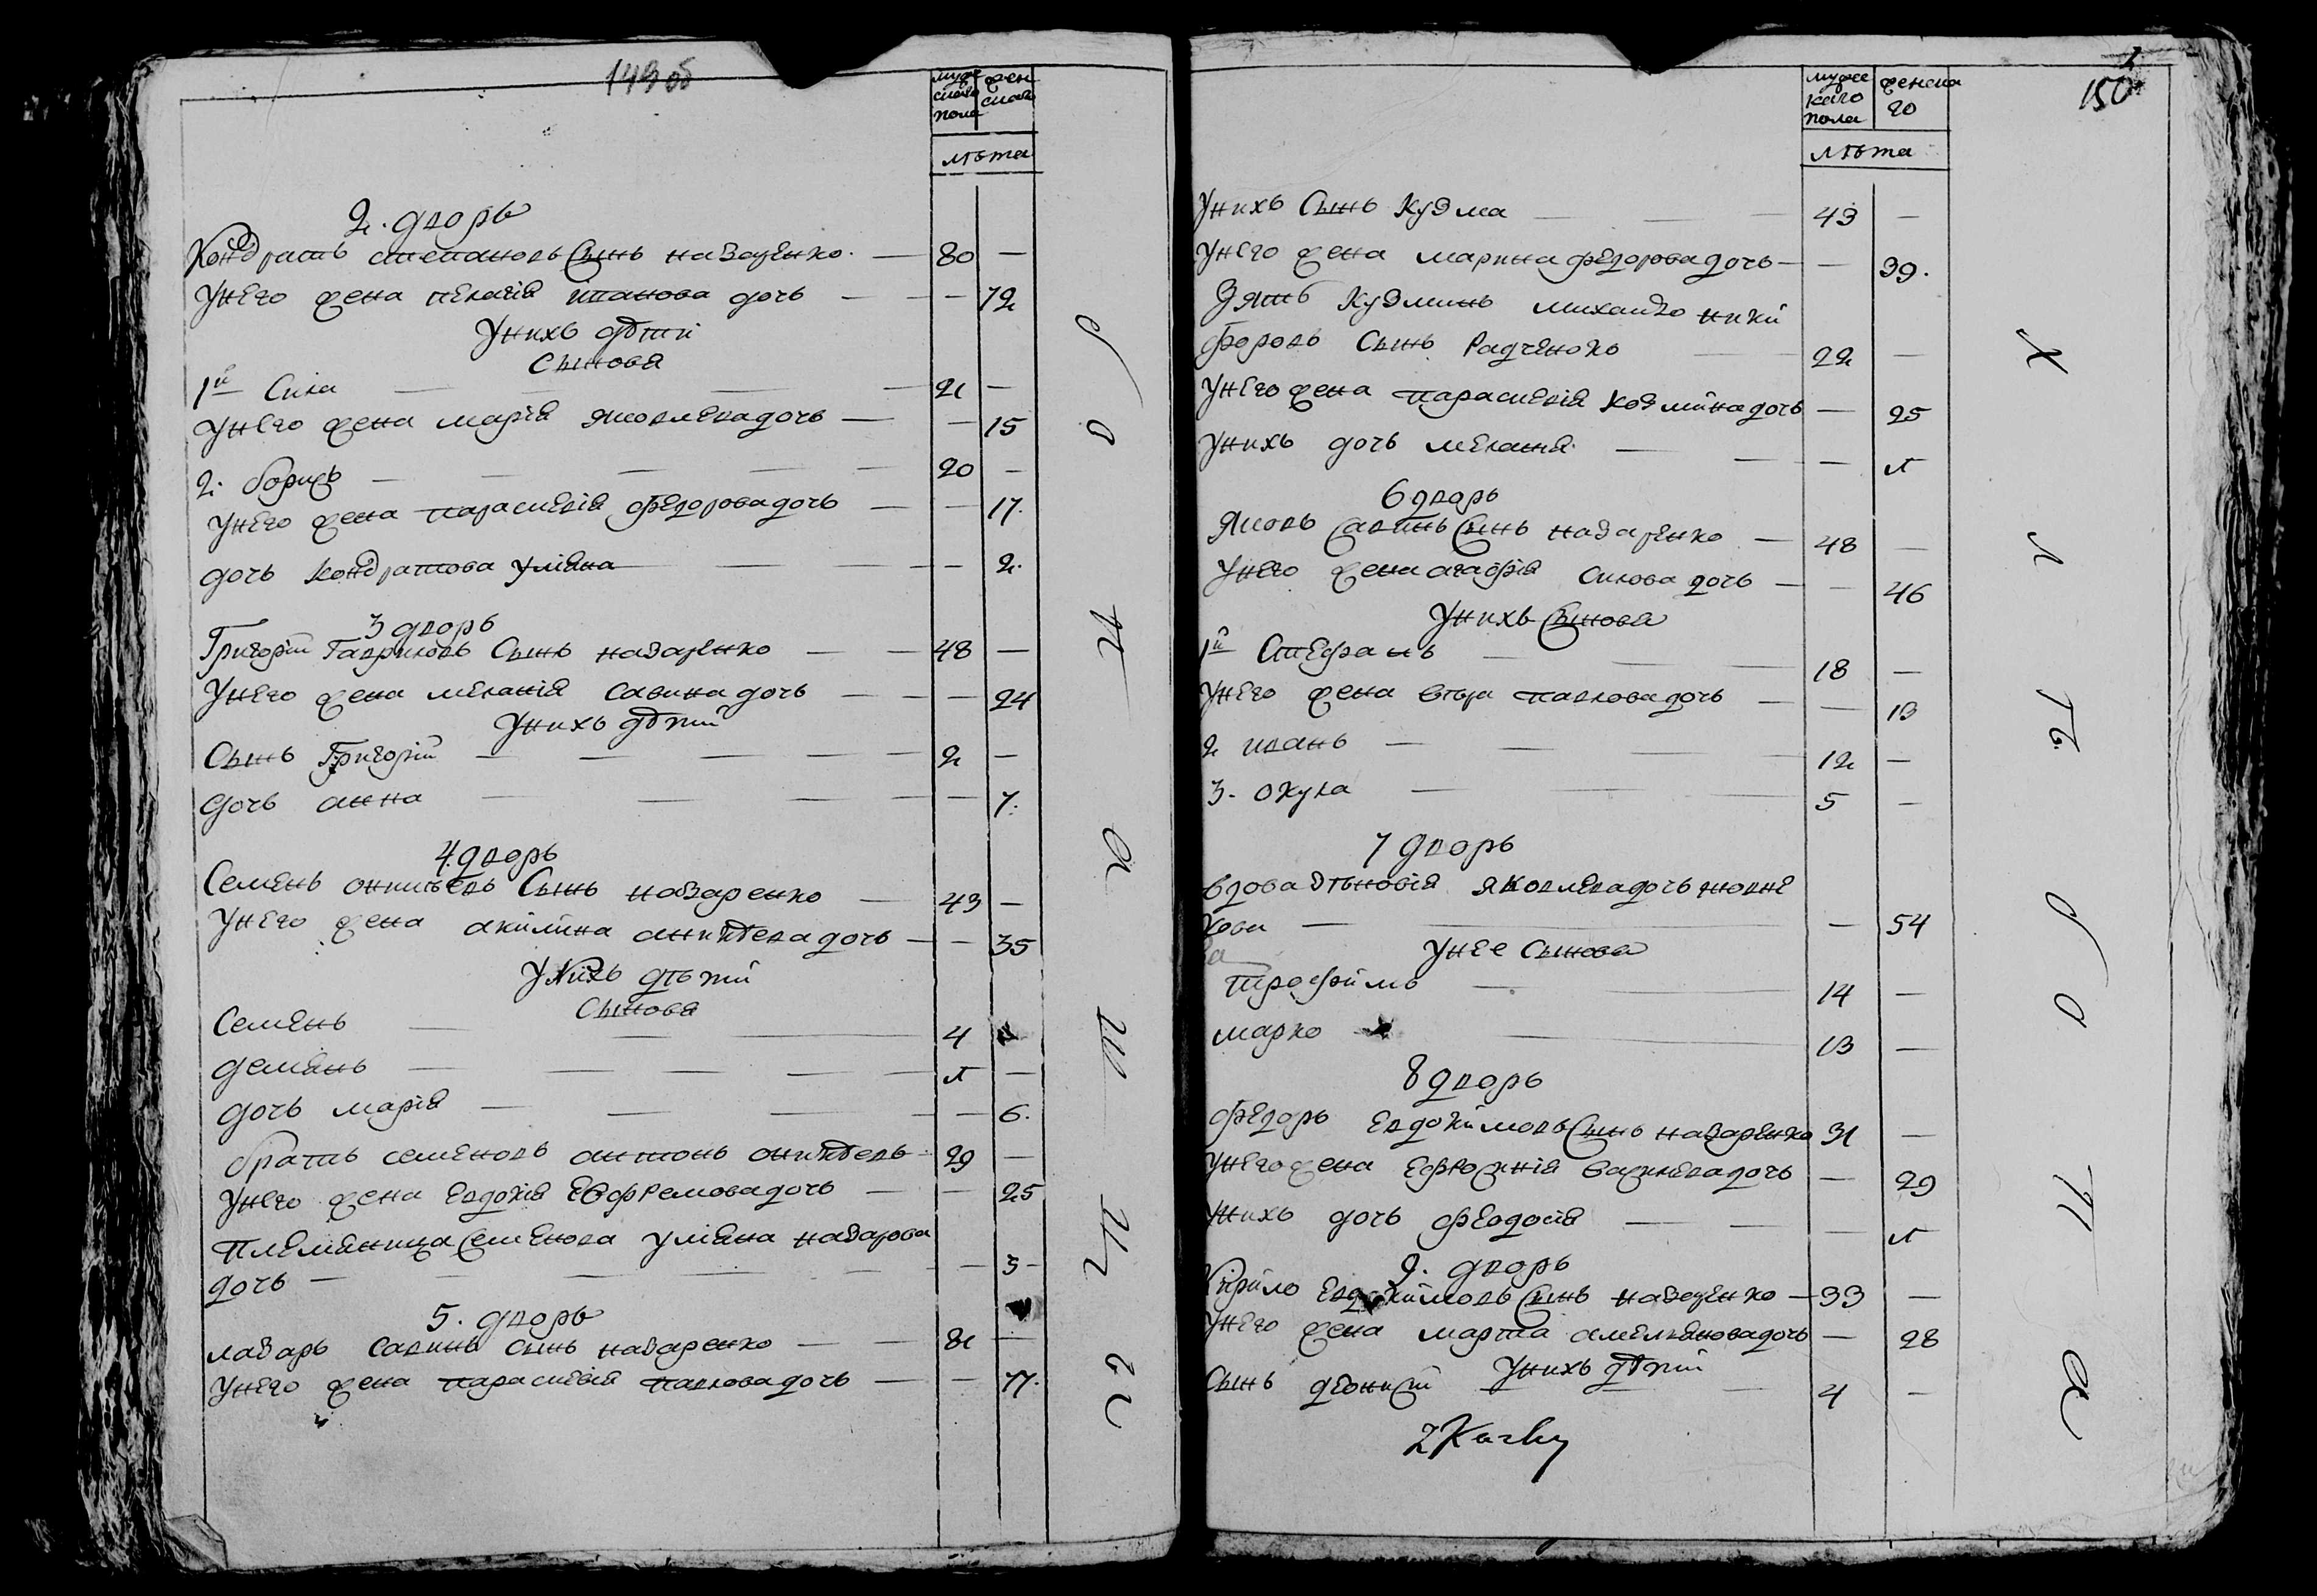 149 об
муже
скаго
пола
жен
скаго
лѣта
2. дворъ
Кондратъ степановъ Сынъ назаренко. — 80 —
Унего жена пелагія иванова дочь — — 72
Унихъ дѣтй
Сынова
1й Сила — 21 —
Унего жена марія яковлевадочь — — 15
2. борисъ — 20 —
Унего жена параскевія федоровадочь — — 17.
дочь кондратова уліяна — — 2.
3 дворъ
Григорій Гавриловъ Сынъ назаренко — 48 —
Унего жена меланія савина дочь — — 24
Унихъ дѣтй
Сынъ Григорій — 2 —
дочь анна — — 7.
4 дворъ
Семенъ оникіевъ Сынъ назаренко — 43 —
Унего жена акилина аникѣева дочь — — 35
Унихъ дѣтй
Сынова
Семенъ — 4
демянъ — л —
дочь марія — — 6.
братъ семеновъ антонъ оникѣевъ 29 —
Унего жена евдокія Евфремовадочь — — 25
Племяница Семенова уліяна назарова
дочь — — 3 -
5. дворъ
лазарь савинъ сынъ назаренко — 81 —
Унего жена параскевія павловадочь — — 77.
2
150
муже
каго
пола
женска
го
лѣта
Унихъ Сынъ Кузма — 43 —
Унего жена марина федоровадочь — — 39.
Зять Кузминъ михайло ники
форовъ Сынъ Радченокъ — 22 —
Унего жена параскевія козминадочь — 25
Унихъ дочь меланія — — л
6 дворъ
Яковъ Савинъ Сынъ назаренко — 48 —
Унего жена агафія силова дочь — — 46
Унихъ Сынова
1й Стефанъ — 18 —
Унего жена вѣра павловадочь — — 13
2 иванъ — 12 —
3. окула — 5 —
7 дворъ
вдова зѣновія яковлевадочь
— 54
Унее Сынова
трофимъ — 14 —
марко — 13 —
8 дворъ
федоръ Евдокимовъ Сынъ назаренко 31 —
Унего жена Ефросинія Василевадочь — 29
Унихъ дочь феодосія — — л
9. дворъ
Кирило Евдокимовъ Сынъ назаренко — 33 —
Унего жена марта амельяновадочь — 28
Унихъ дѣтй
Сынъ деонисій — 4 —